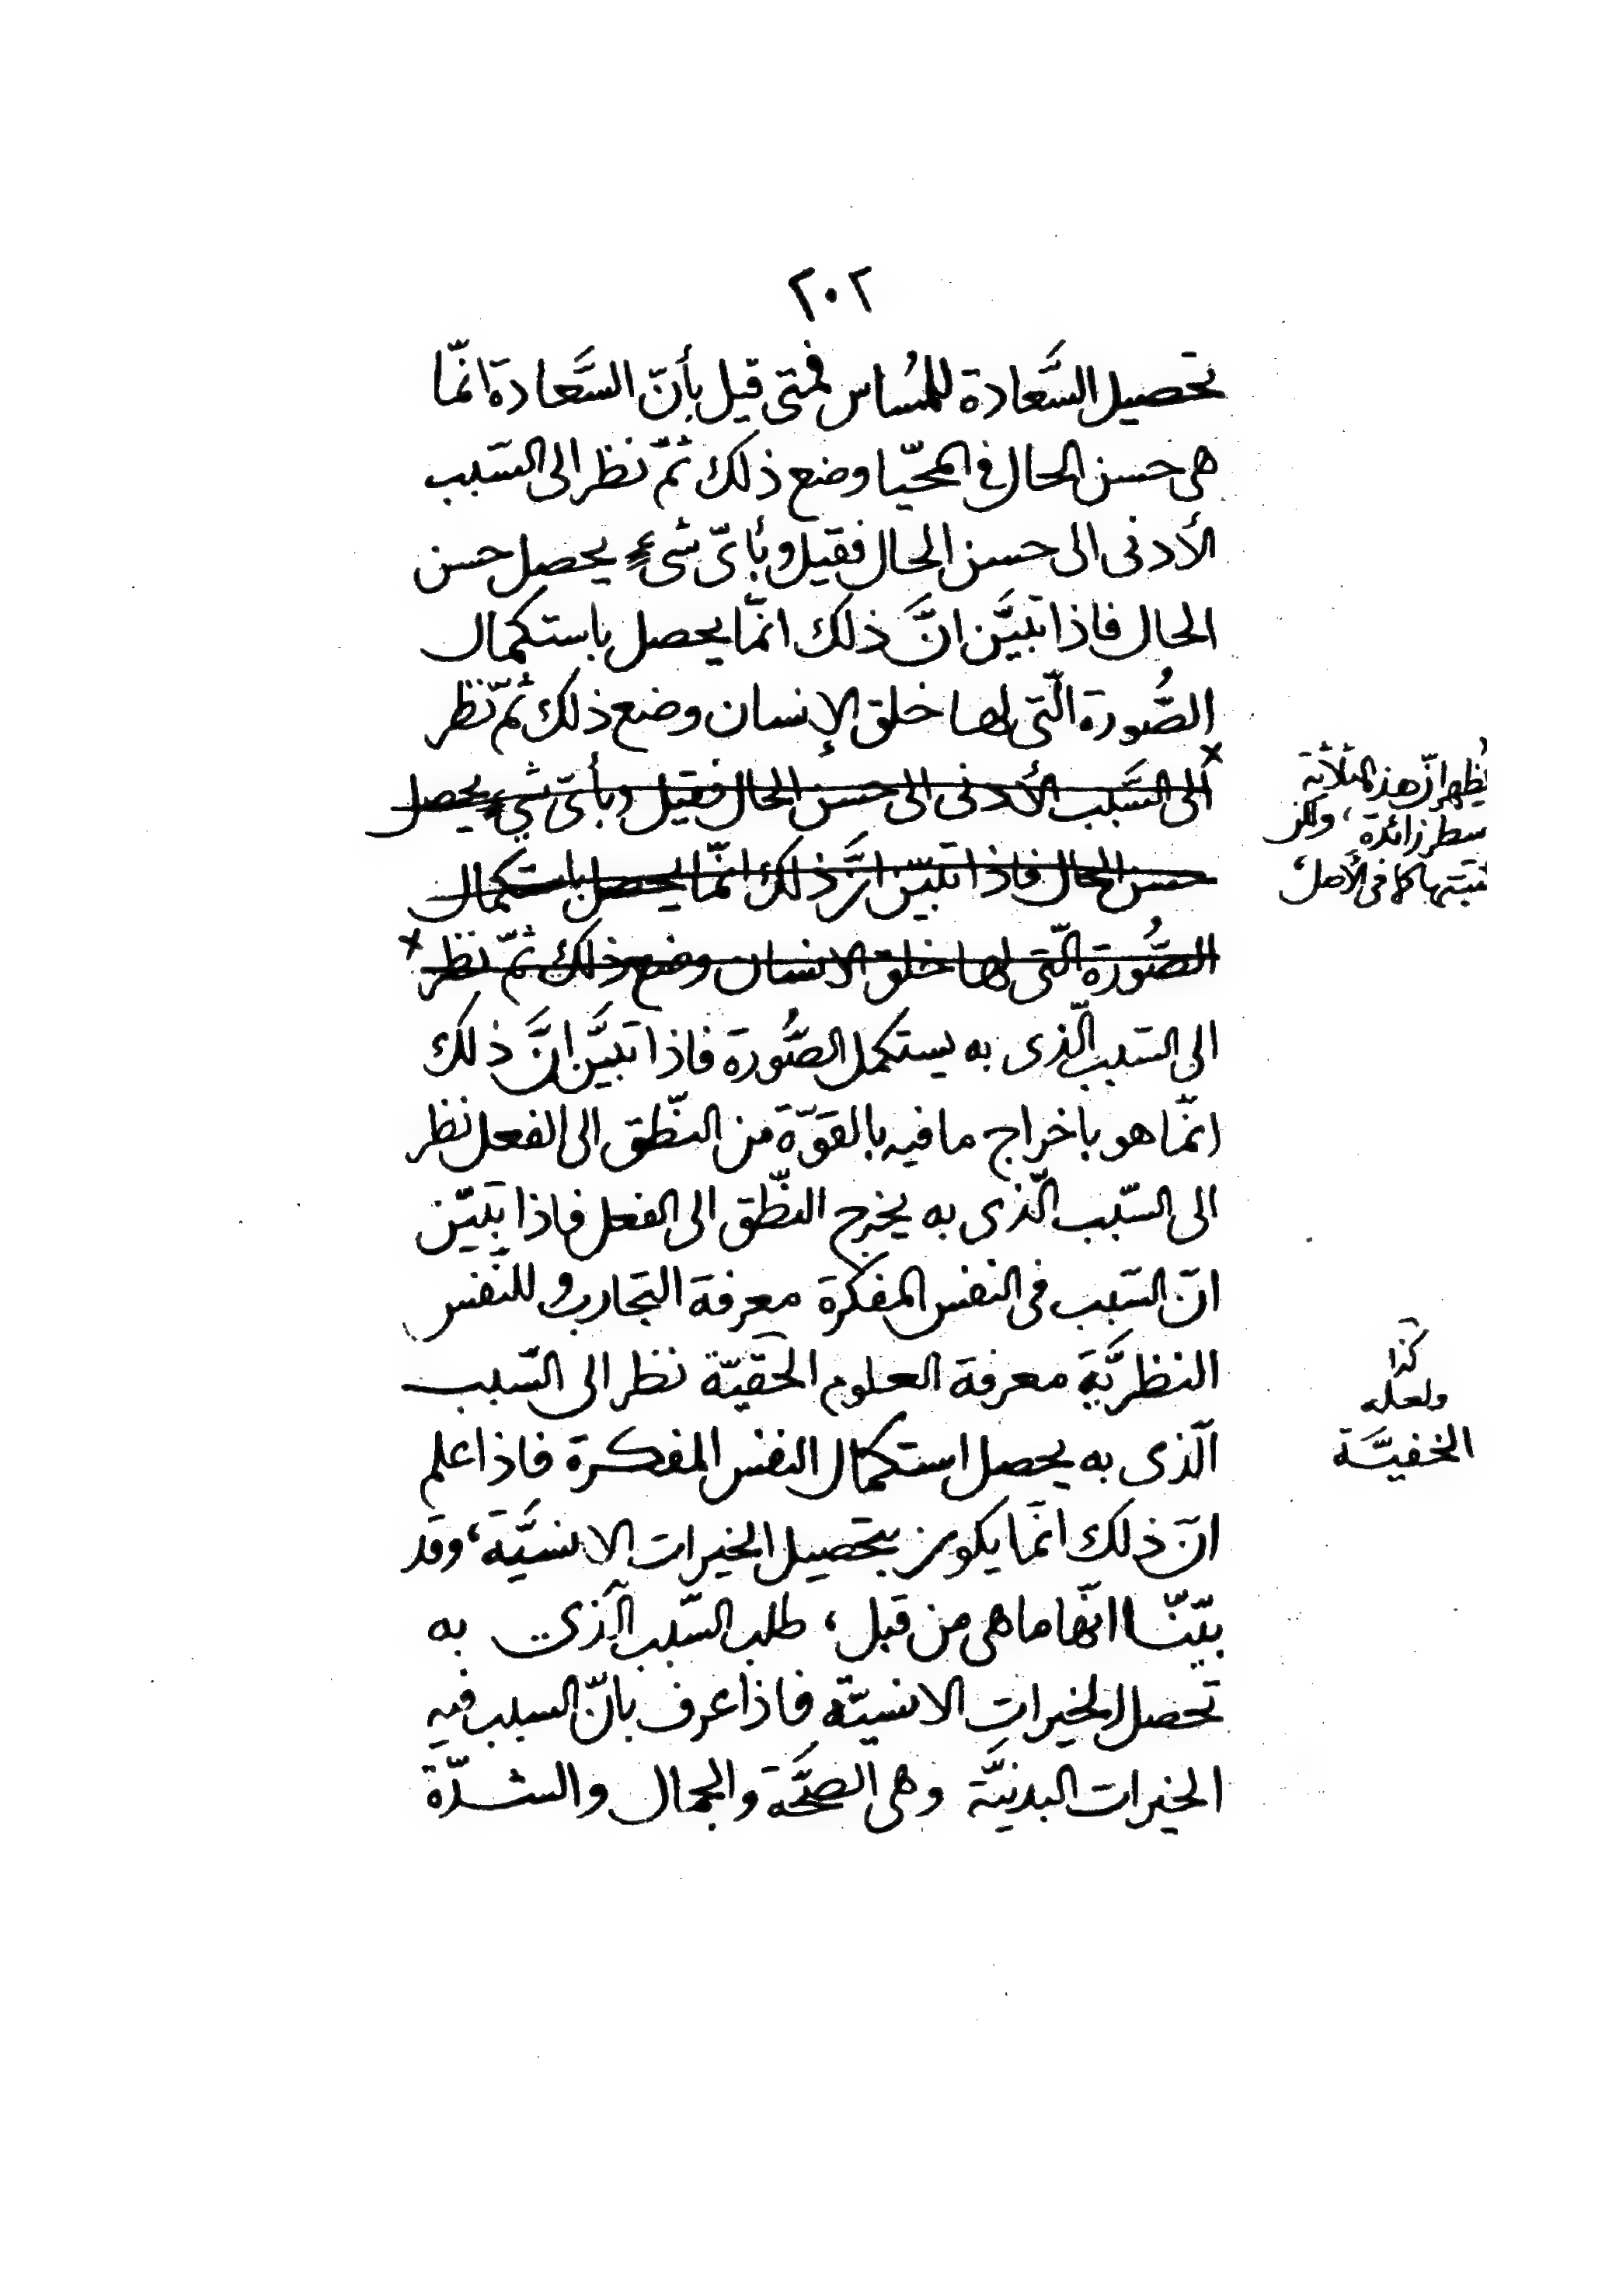 ٢٠٢
تحصيل السَّعادة للمُساس فمتى قيل بأنّ السَّعادة انّما
هى حسن الحال فى المحيّا وضع ذلك ثمّ نظر الى السّبب
الأدنى الى حسن الحال فقيل وبأىّ شىءٍ يحصل حسن
الحال فاذا تبيَّن انَّ ذلك انّما يحصل باستكمال
الصُّورة الّتى لها خلق الإنسان وضع ذلك ثمّ نظر
الى السَّبب الأدنى الى حسن الحال فقيل وبأىّ شىءٍ يحصل
حسن الحال فاذا تبيّن انَّ ذلك انّما يحصل باستكمال
الصُّورة الّتى لها خلق الانسان وضع ذلك ثمّ نظر
يظهر انّ هذه الثلاثة
سطر زائدة، ولكن
كما فى الأصل
الى السّبب الّذى به يستكمل الصُّورة فاذا تبيَّن انَّ ذلك
انّما هو باخراج ما فيه بالقوّة من النّطق الى الفعل نظر
الى السّبب الّذى به يخرج النّطق الى الفعل فاذا تبيّن
انّ السّبب فى النفس المفكرة معرفة التجارب وللنّفس
النظريَّة معرفة العلوم الحقيّة نظر الى السّبب
كذا
ولعله
الخفيَّة
الّذى به يحصل استكمال النفس المفكرة فاذا علم
انّ ذلك انّما يكون بتحصيل الخيرات الانسيَّة، وقد
بيّنّا انّها ما هى من قبل، طلب السّبب الّذى به
تحصل الخيرات الانسيّة فاذا عرف بانّ السبب فيه
الخيرات البدنيَّة وهى الصحَّة والجمال والشدّة